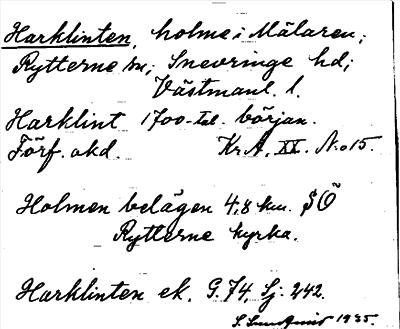 Harklinten, holme i Mälaren;
Rytterne sn; Snevringe hd;
Västmanl. l.
Harklint 1700-tal. början.
Förf. okd. Kr. A. XX. No 15.
Holmen belägen 4,8 km. SÖ
Rytterne kyrka.
Harklinten ek. G. 74, Sj: 242.
1935.